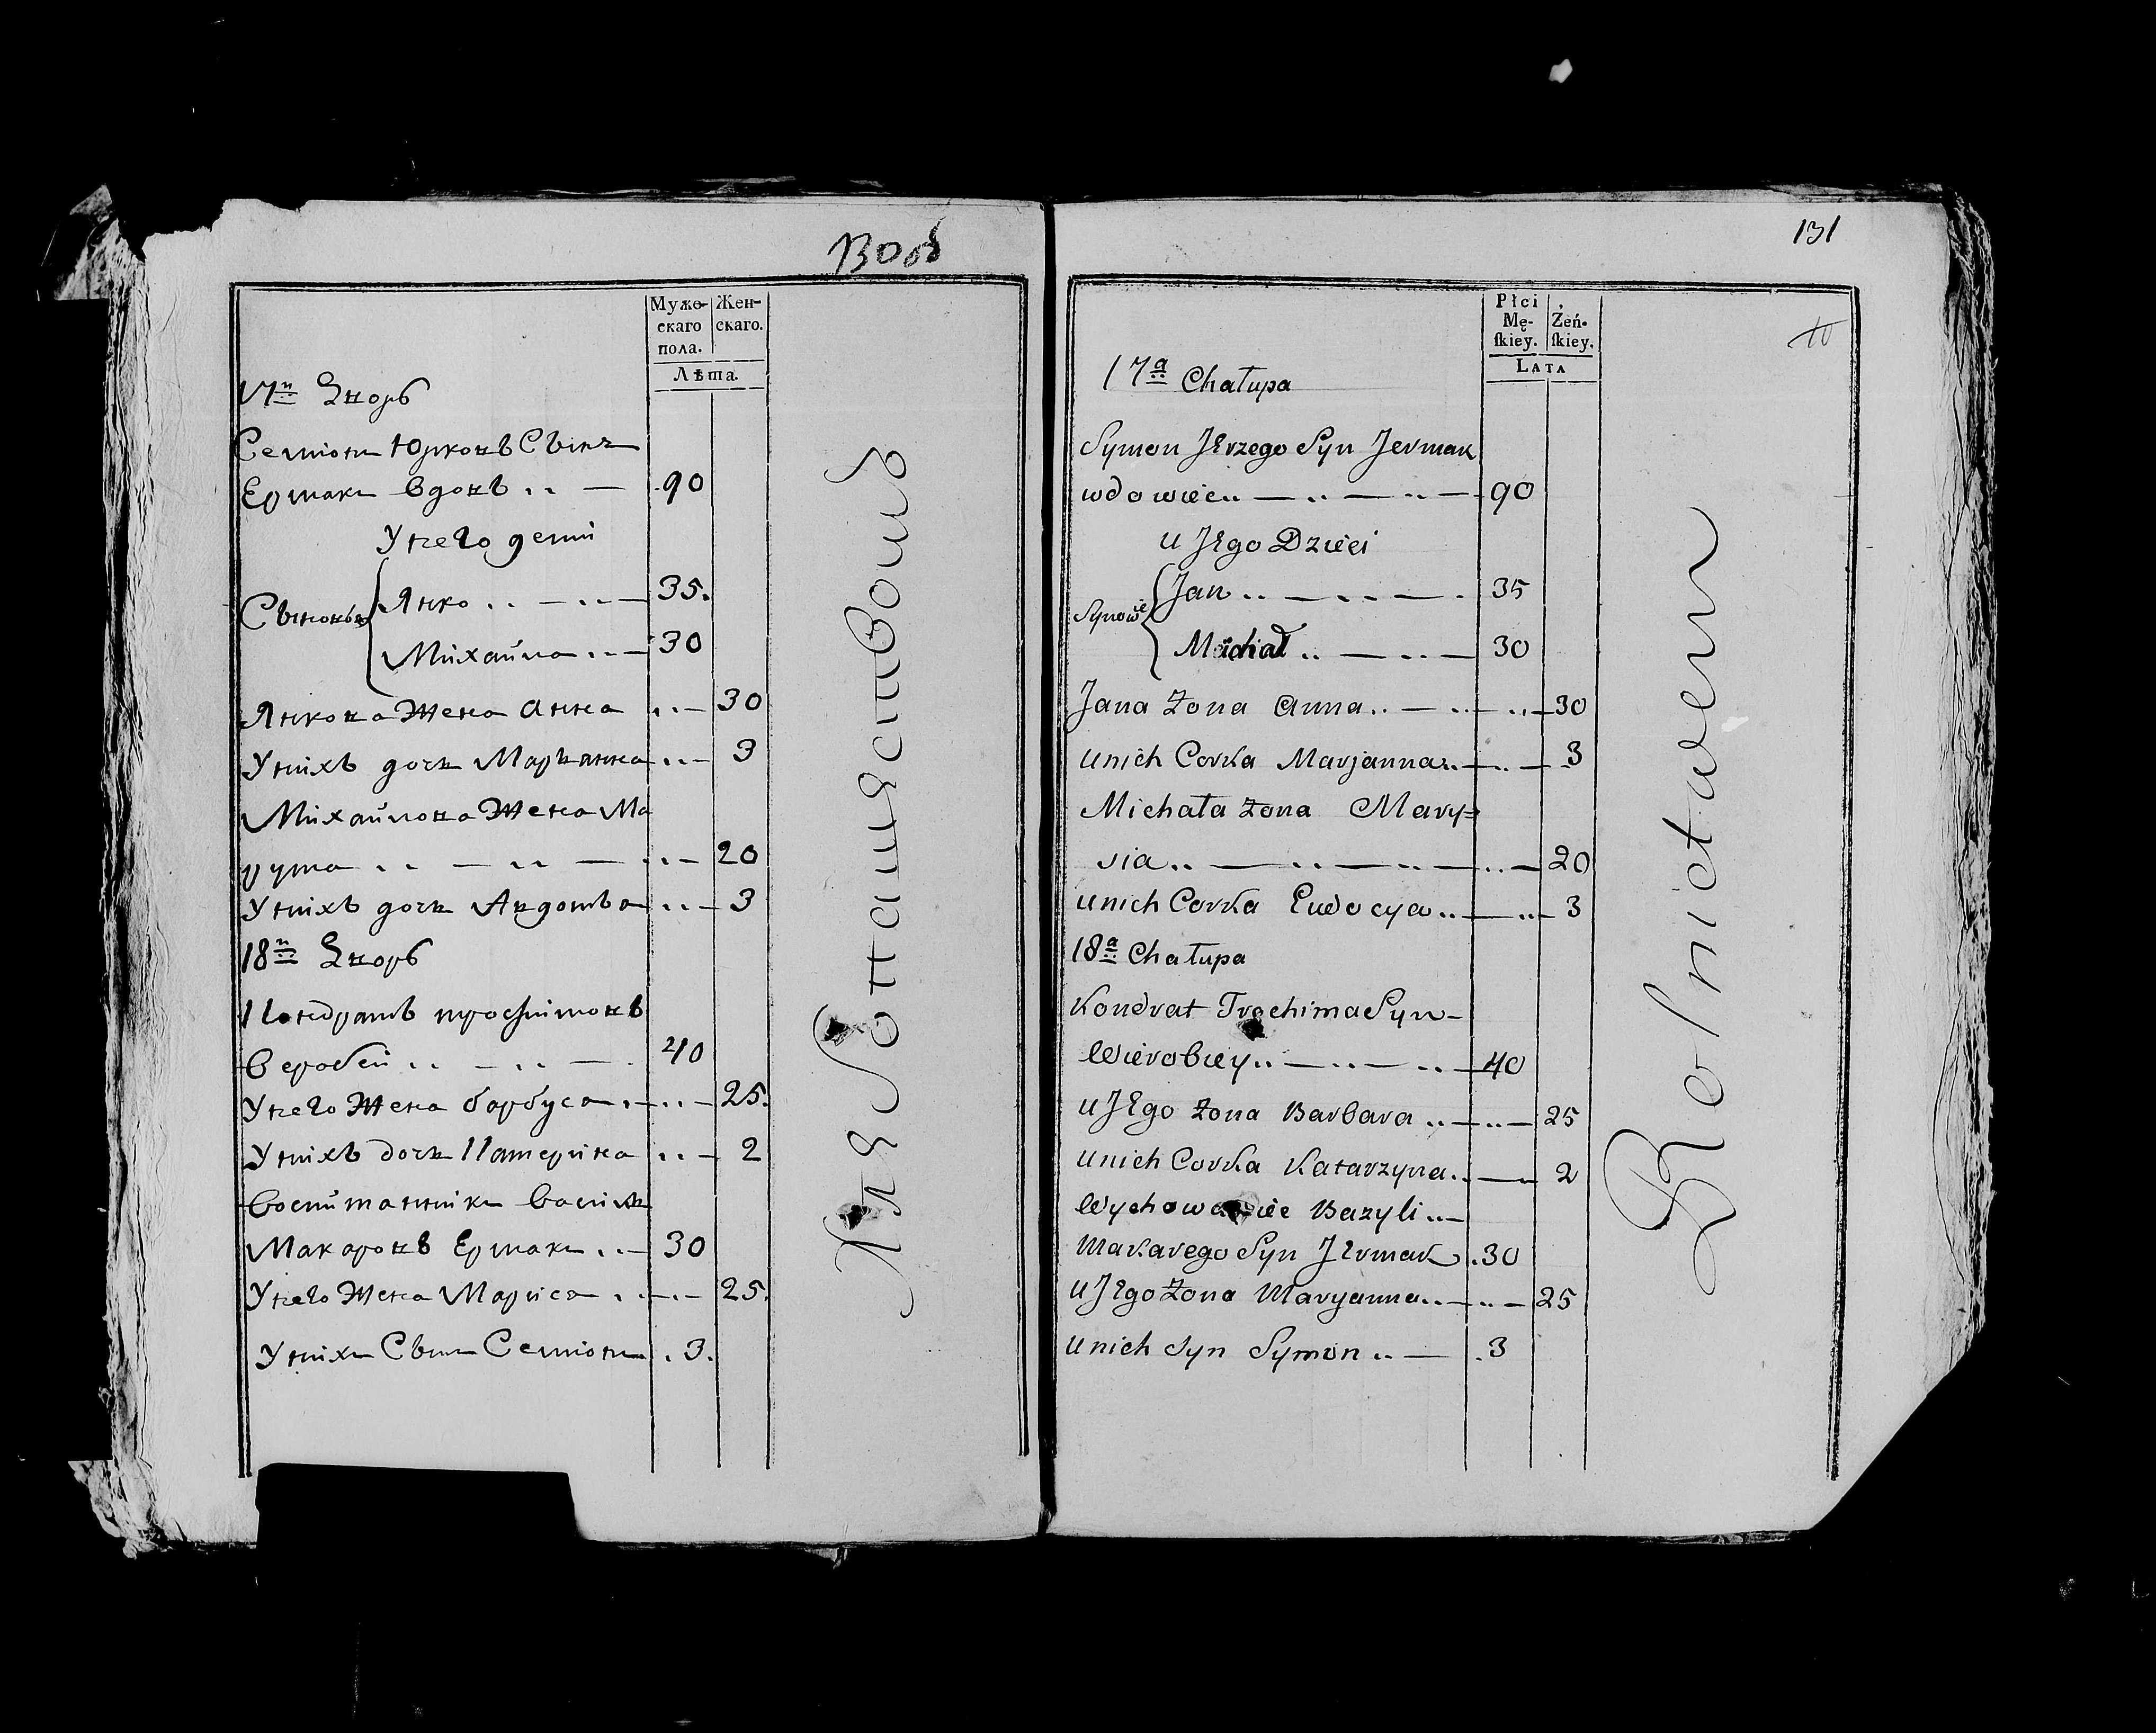 130об
Мужескаго пола.
Женскаго.
Лѣта.
17й Дворъ
Семіонъ Юрковъ Сынъ
Ермакъ вдовъ .. — 90
У него дети
Сыновья
Янко .. — .. — 35.
Михайла .. — 30
Янкова Жена Анна .. — 30
У нихъ дочь Марьянна .. — 3
Михайлова Жена Ма
рута .. — .. — .. — 20
У нихъ дочь Авдотья .. — 3
18й Дворъ
Кондратъ трофимовъ
Веробей .. — .. — 40
У него Жена барбуса .. — 25.
У нихъ дочь Катерина .. — 2
Воспитанникъ Василь
Макаровъ Ермакъ .. — 30
У него Жена Мариса .. — 25.
У нихъ Сынъ Семіонъ . 3.
131
10
Płci Męſkiey.
Żeńſkiey.
Lata
17a Chałupa
Symon JErzego Syn Jermak
wdowiec .. — .. — .. — 90
u JEgo Dzieci
Synowie
Jan .. — .. — . 35
Michał .. — .. — 30
Jana Żona Anna .. — .. — .. — 30
u nich Corka Marjanna .. — .. — 3
Michała Żona Mary=
sia .. — .. — .. — .. — 20
u nich Corka Eudocya .. — .. — 3
18a Chałupa
Kondrat Trochima Syn —
Wierobiey .. — .. — .. — 40
u JEgo Żona Barbara .. — .. — 25
u nich Corka Katarzyna .. — 2
Wychowaniec Bazyli .. —
Makarego Syn JErmak . 30
u JEgo Żona Maryanna .. — .. — 25
u nich Syn Symon .. — . 3
Rolnictwem